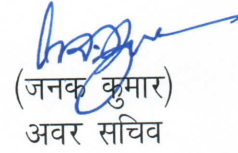 (जनक कुमार)
अवर सचिव